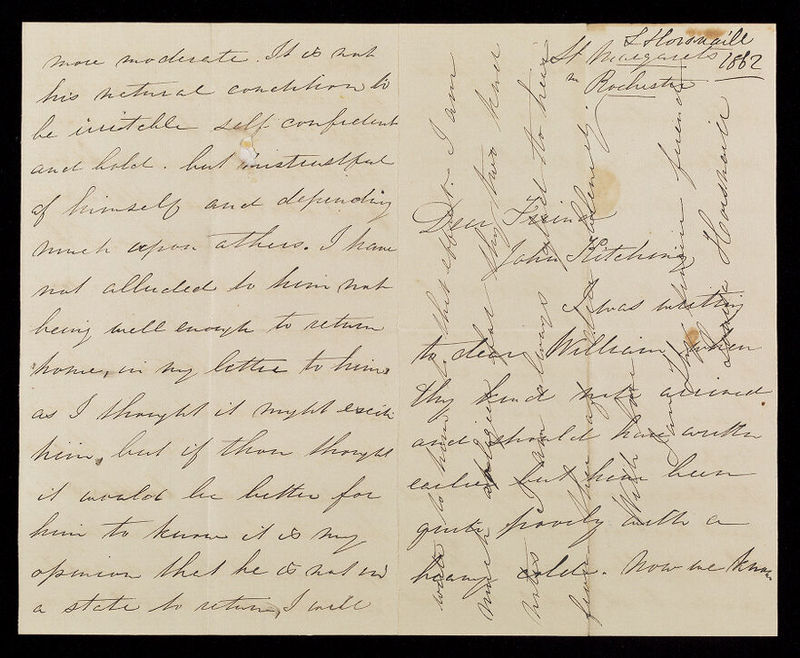 more moderate. It is not
his natural condition to
be irritable self confident
and bold. but mistrustful
of himself and depending
much upon others. I have
not alluded to him not
being well enough to return
home, in my letter to him
as I thought it might excite
him, but if thou thought
it would be better for
him to know it is my
opinion that he is not in
a state to return, I will
Horsnaill
1862
St Margarets
Rochester
Dear Friend
John Kitching
I was writing
to dear William when
thy kind note arrived
and should have written
earlier but have been
quite poorly with a
heavy cold. Now we know
write to him to that effect. I am
much obliged for thy two kind
notes I am always glad to hear
from thee
With love
I am thy friend
Horsnaill